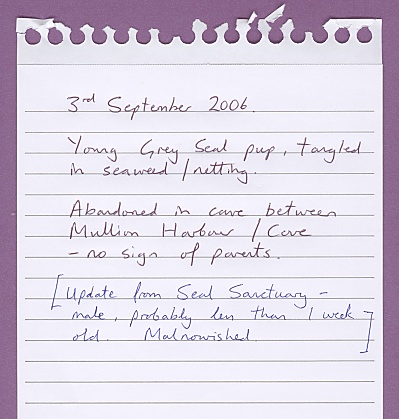 3rd September 2006.
Young Grey Seal pup, tangled
in seaweed / netting.
Abandoned in cave between
Mullion Harbour / Cove
- no sign of parents.
[Update from Seal Sanctuary -
male, probably less than 1 week
old. Malnourished.]